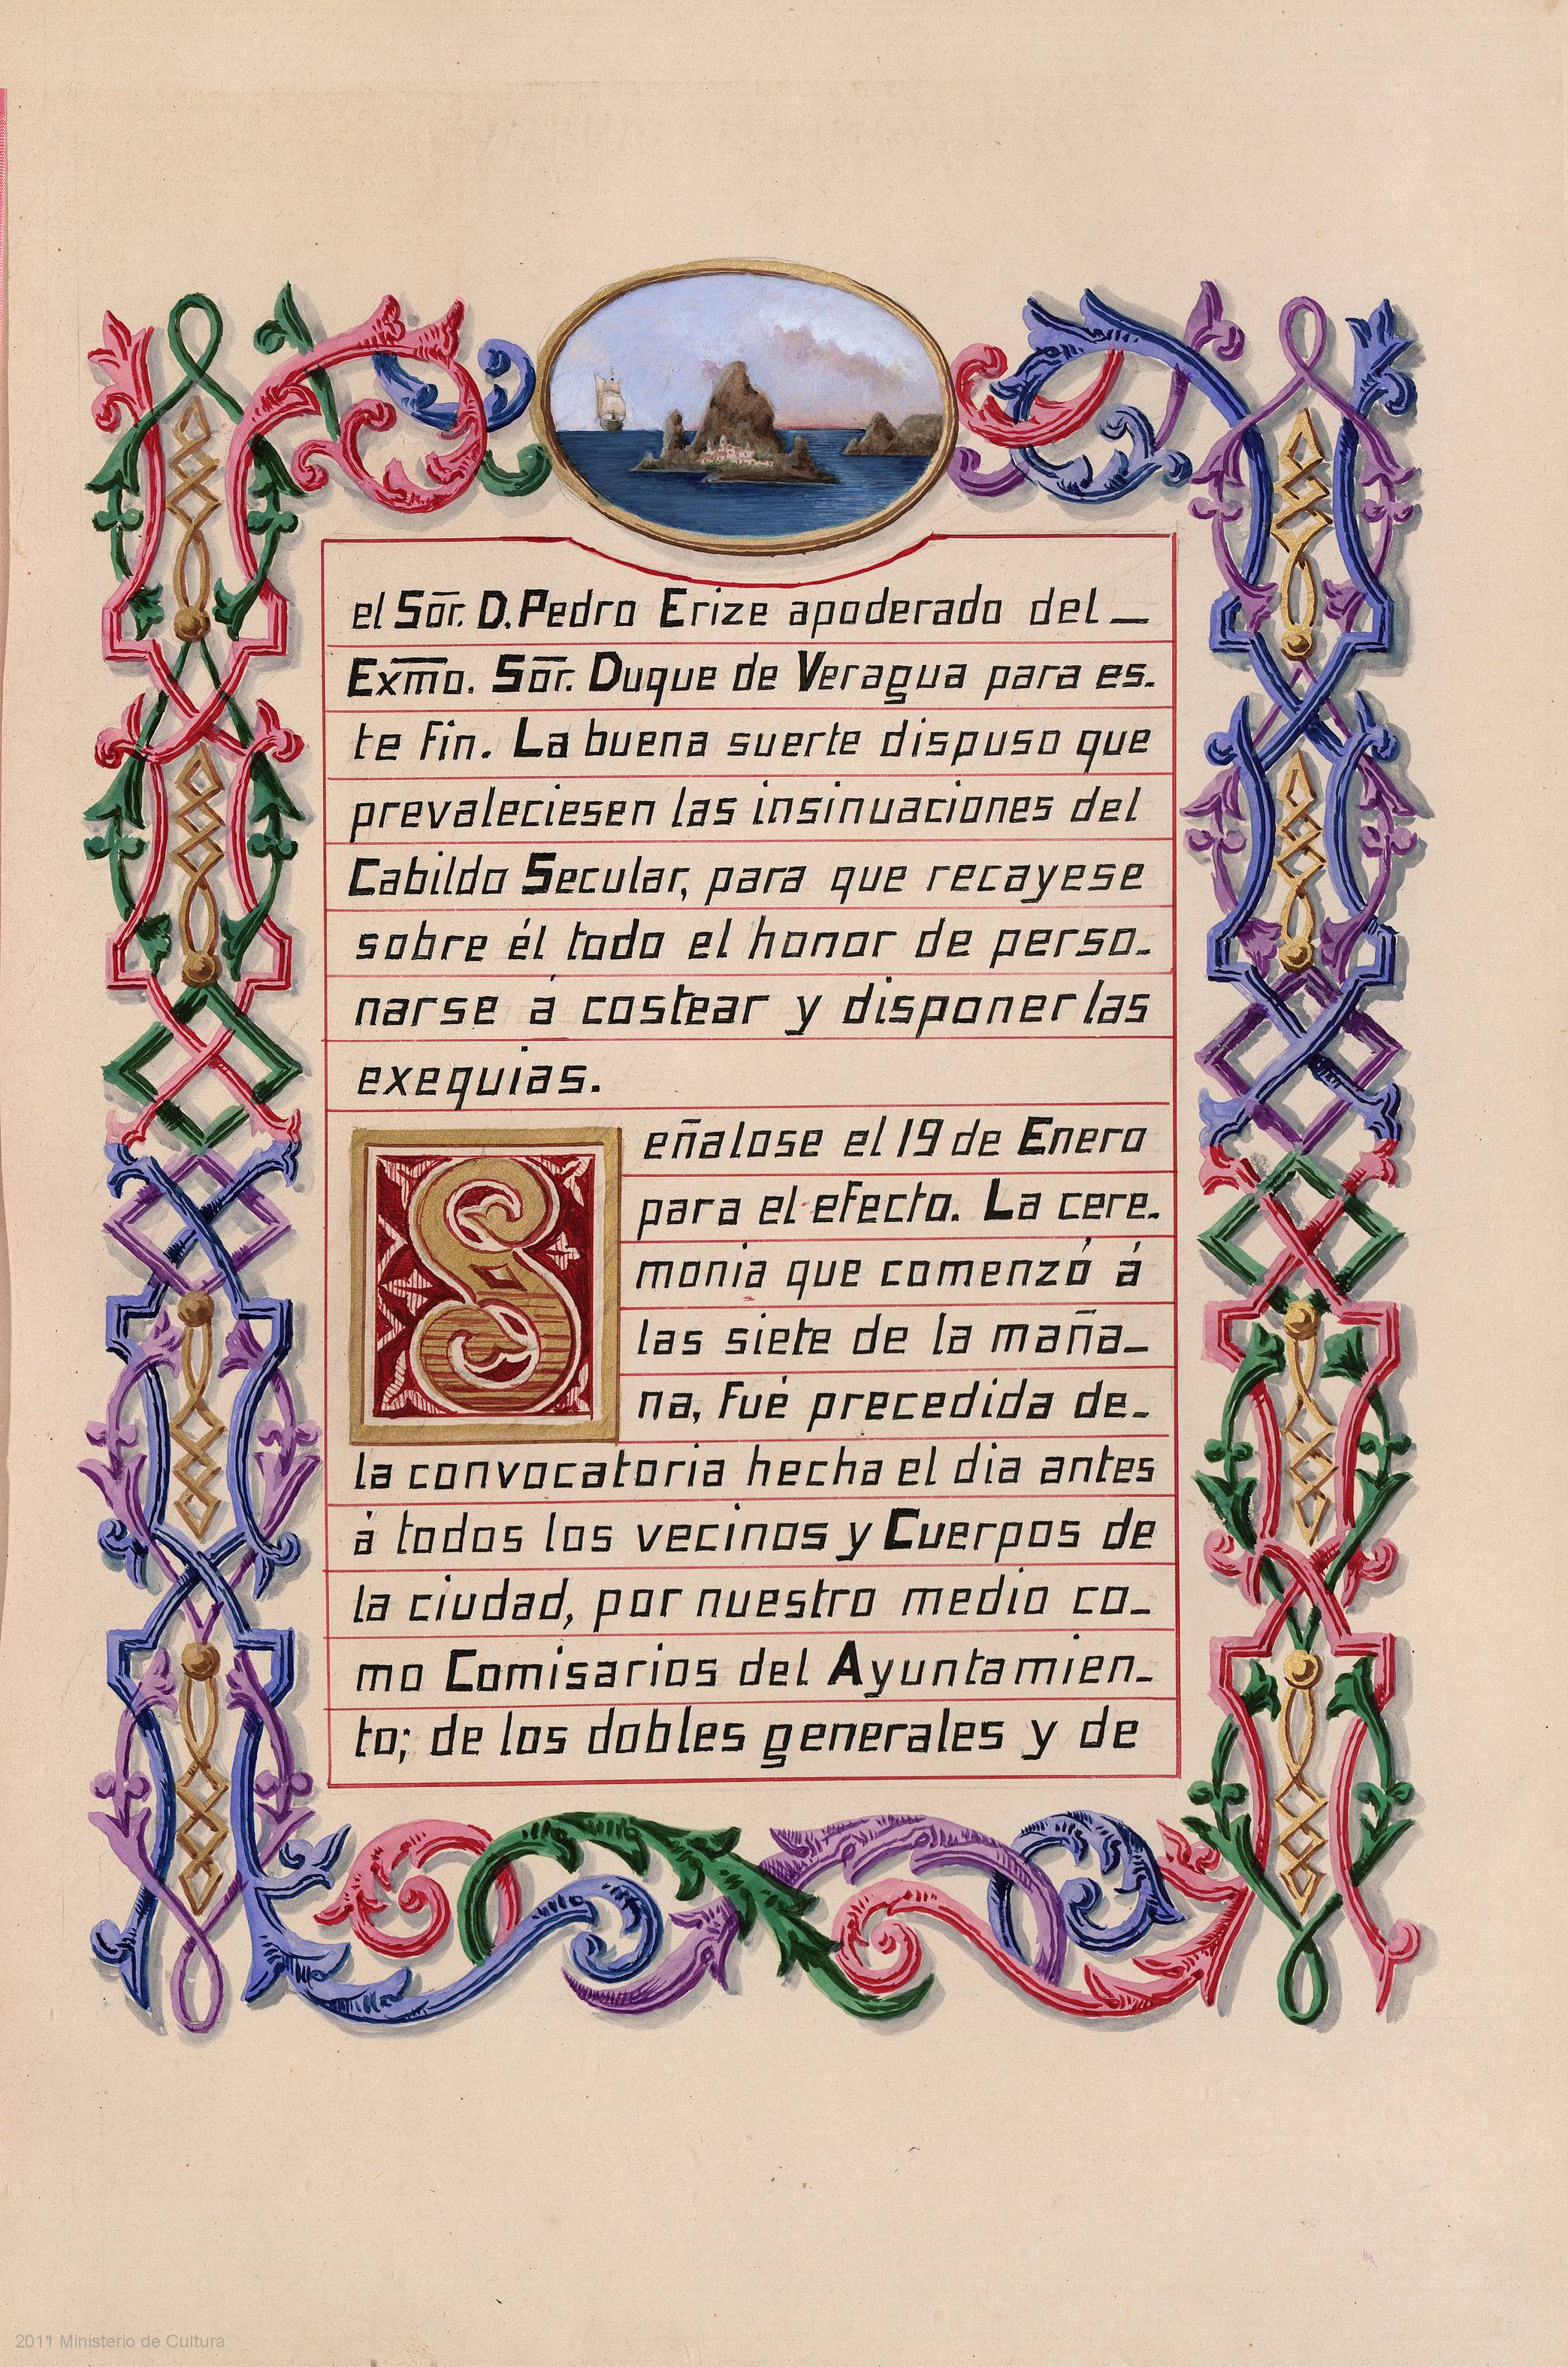 el Sōr. D. Pedro Erize apoderado del_
Exm̄o. Sōr. Duque de Veragua para es-
te fin. La buena suerte dispuso que
prevaleciesen las insinuaciones del
Cabildo Secular, para que recayese
sobre él todo el honor de perso-
narse á costear y disponer las
exequias.
Señalose el 19 de Enero
para el efecto. La cere-
monia que comenzó á
las siete de la maña_
na, fué precedida de_
la convocatoria hecha el dia antes
á todos los vecinos y Cuerpos de
la ciudad, por nuestro medio co_
mo Comisarios del Ayuntamien_
to; de los dobles generales y de
2011 Ministerio de Cultura